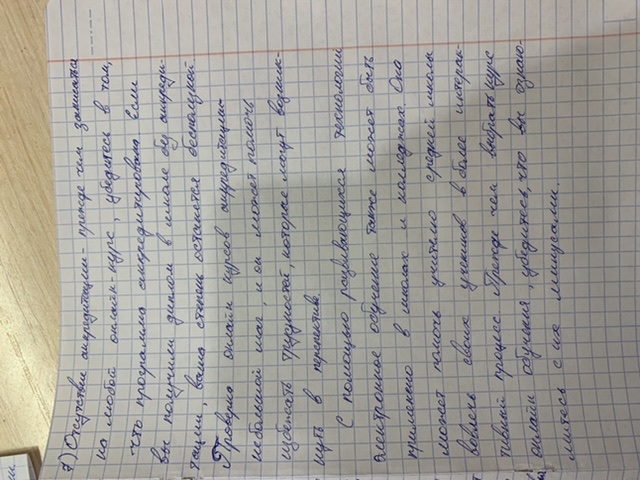 7) Отсутствие аккредитации - прежде чем записаться
на любой онлайн-курс, убедитесь в том,
что программа аккредитирована. Если
вы получили диплом в школе без аккреди-
тации, ваша степень останется бесполезной
Проверка онлайн курсов аккредитации
небольшой шаг, и он может помочь
избежать трудностей, которые могут возник-
нуть в перспективе.
С помощью развивающихся технологии
электронное обучение также может быть
применено в школах и колледжах. Оно
может помочь учителю средней школы
вовлечь своих учеников в более интерак-
тивный процесс. Прежде чем выбрать курс
онлайн обучения, убедитесь, что вы
митесь с их минусами.